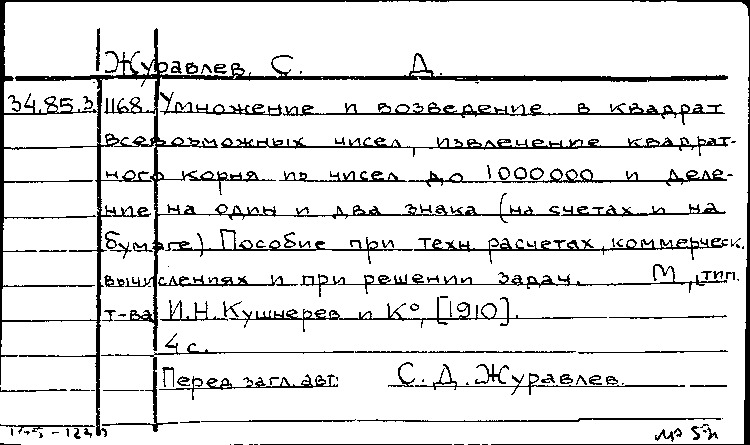 Журавлев, С. Д.
34.85.3. 1168. Умножение и возведение в квадрат
всевозможных чисел, извлечение квадрат-
ного корня из чисел до 1000000 и деле-
ние на один и два знака (на счетах и на
бумаге). Пособие при техн. расчетах, коммерческ.
вычислениях и при решении задач. М., тип.
т-ва И.Н. Кушнерев и К°, [1910].
4 с.
Перед загл. авт: С. Д. Журавлев.